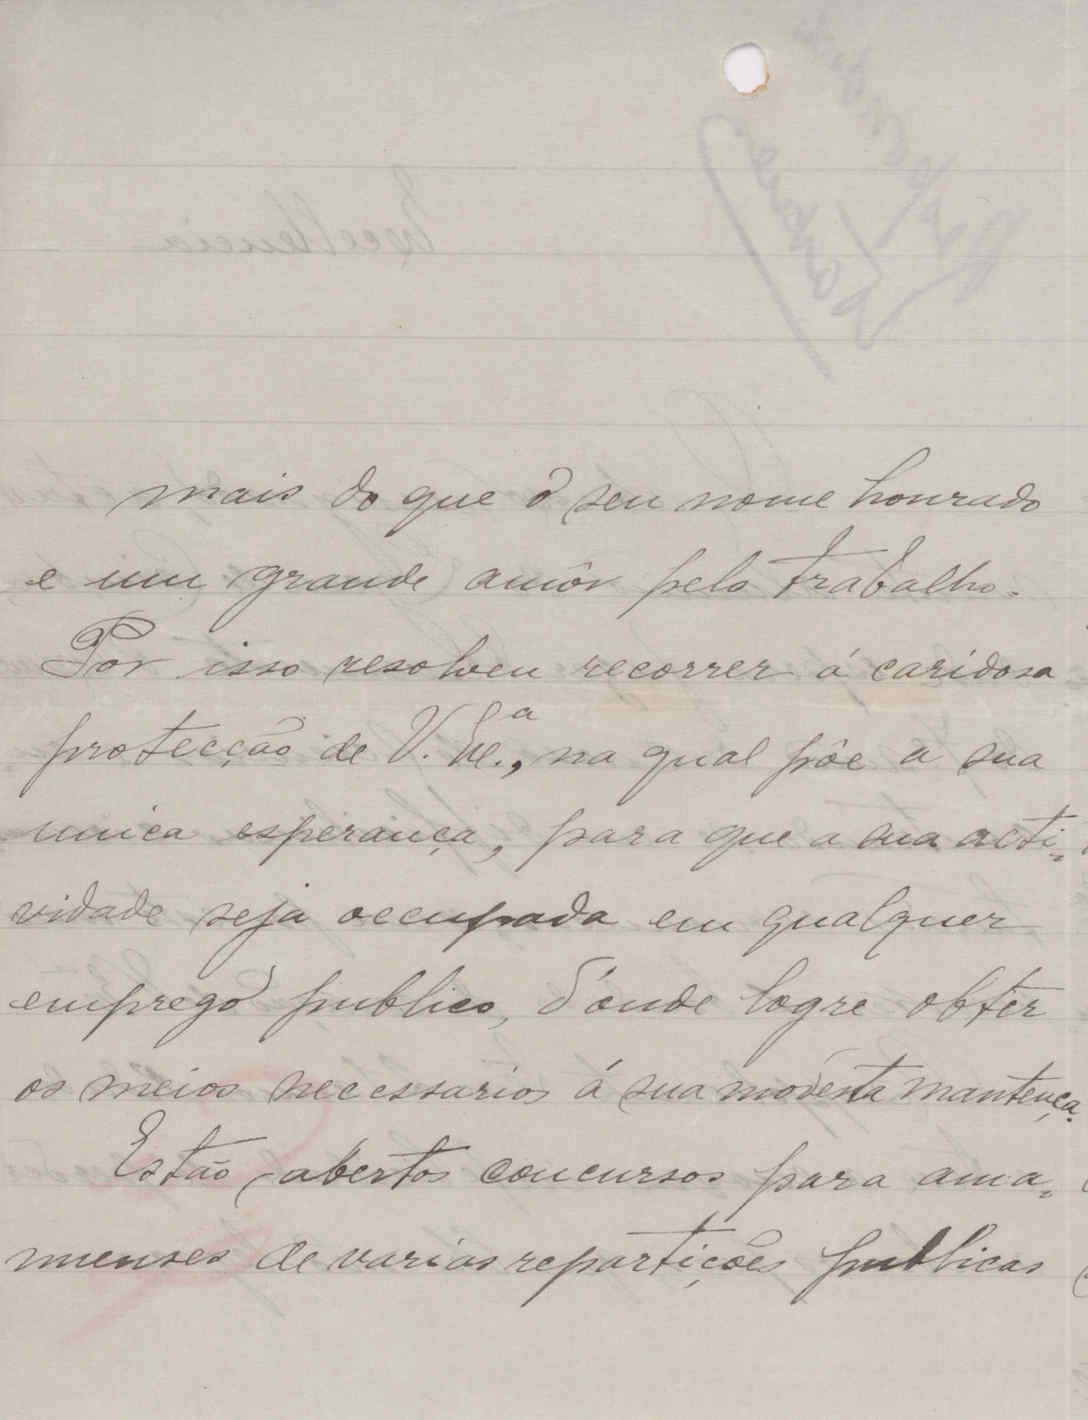 mais do que o seu nome honrado
e um grande amôr pelo trabalho.
Por isso resolveu recorrer á caridosa
protecção de V. Ex.ª, na qual põe a sua
unica esperança, para que a sua acti-
vidade seja occupada em qualquer
emprego publico, d'onde logre obter
os meios necessarios á sua modesta mantença.
Estão abertos concursos para ama-
nuenses de varias repartições publicas